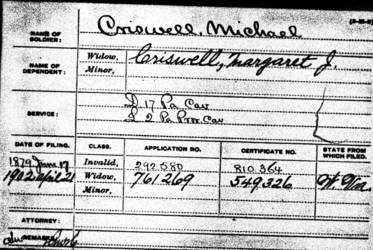 NAME OF SOLDIER: Criswell, Michael
NAME OF DEPENDENT: Widow, Criswell, Margaret J.
Minor,
SERVICE: I. 17 Pa Cav
L 2 Pa Pro. Cav
DATE OF FILING. CLASS. APPLICATION NO. CERTIFICATE NO. STATE FROM WHICH FILED.
1879 June 17 Invalid, 292580 810.364
1902 April 21 Widow, 761269 549326 W. Va
Minor,
ATTORNEY:
REMARKS: